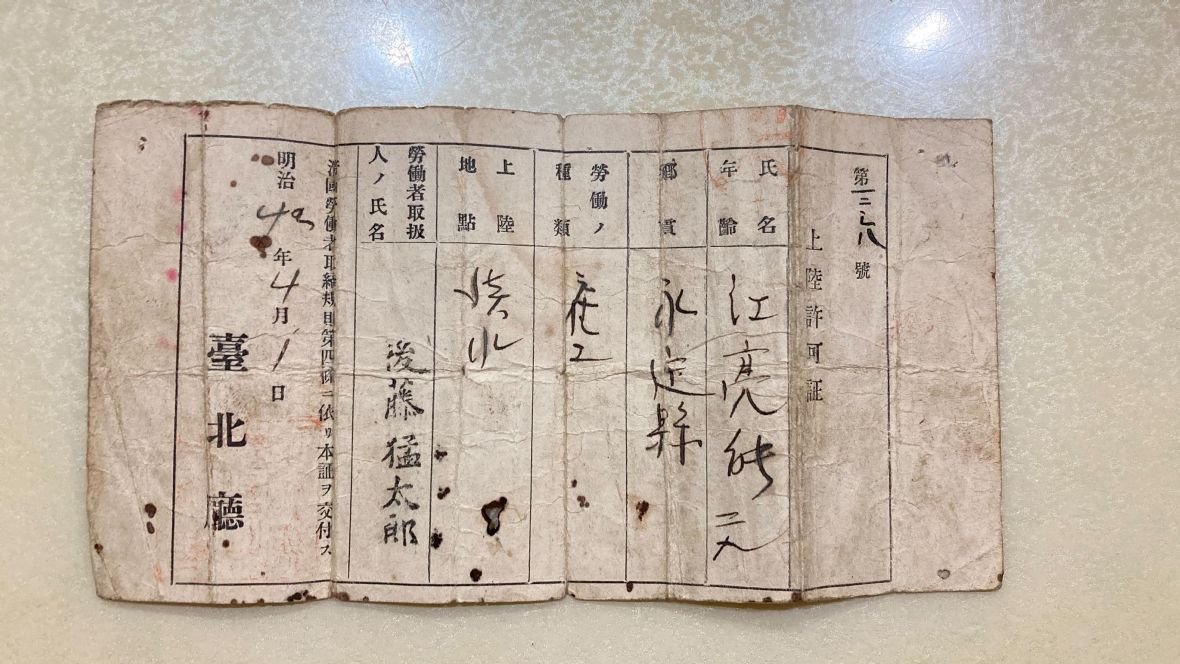 第 號
上陸許可証
氏名
年齡
江亮能
鄉貫
永定縣
勞働ノ
種類
上陸
地點
淡水
勞働者取扱
人ノ氏名
後藤猛太郎
清國勞働者取締規則第四條ニ依リ本証ヲ交付ス
明治 年4月1日
臺北廳